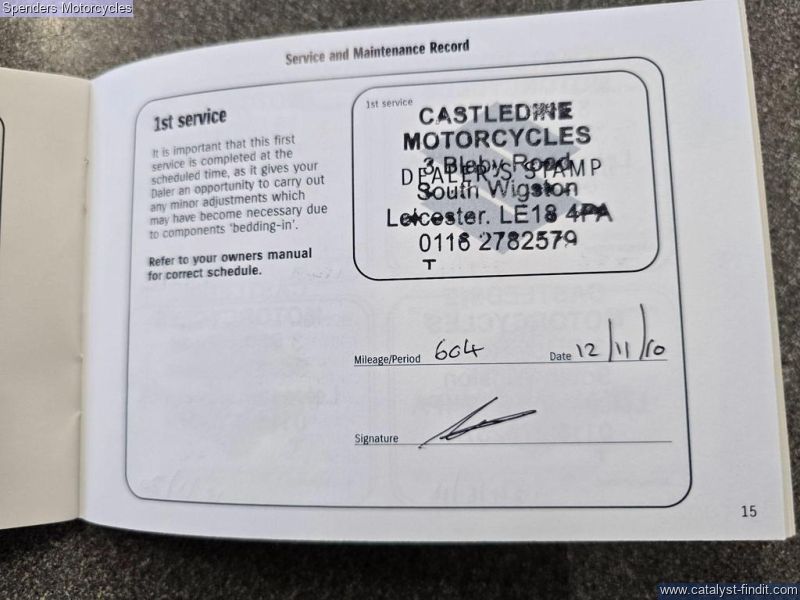 Spenders Motorcycles
Service and Maintenance Record
1st service
It is important that this first
service is completed at the
scheduled time, as it gives your
Daler an opportunity to carry out
any minor adjustments which
may have become necessary due
to components 'bedding-in'.
Refer to your owners manual
for correct schedule.
1st service
CASTLEDINE
MOTORCYCLES
3 Bleby Road
DEALER'S STAMP
South Wigston
Leicester. LE18 4PA
0116 2782579
T
Mileage/Period 604
Date 12/11/10
Signature
15
www.catalyst-findit.com